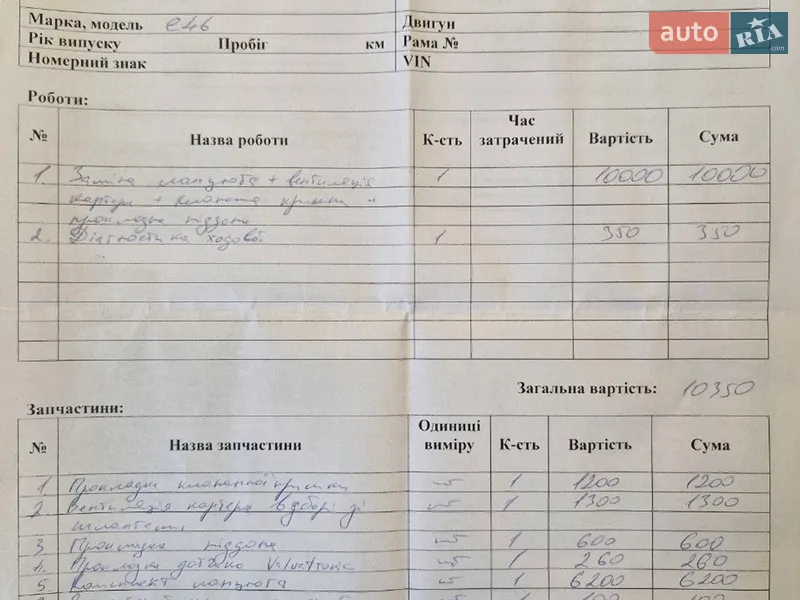 Марка, модель e46
Двигун
Рік випуску Пробіг км
Рама №
Номерний знак
VIN
auto RIA .com
Роботи:
№ Назва роботи К-сть Час затрачений Вартість Сума
1. Заміна ланцюга + вентиляція 1 10000 10000
картера + клапанна кришка +
прокладка піддона
2. Діагностика ходової 1 350 350
Загальна вартість: 10350
Запчастини:
№ Назва запчастини Одиниці виміру К-сть Вартість Сума
1. Прокладка клапанної кришки шт 1 1200 1200
2. Вентиляція картера в зборі зі шт 1 1300 1300
шлангами
3. Прокладка піддона шт 1 600 600
4. Прокладка датчика Valvetronic шт 1 260 260
5. Комплект ланцюга шт 1 6200 6200